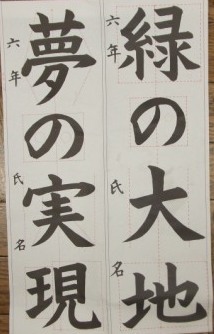 緑の大地
六年 氏名
夢の実現
六年 氏名